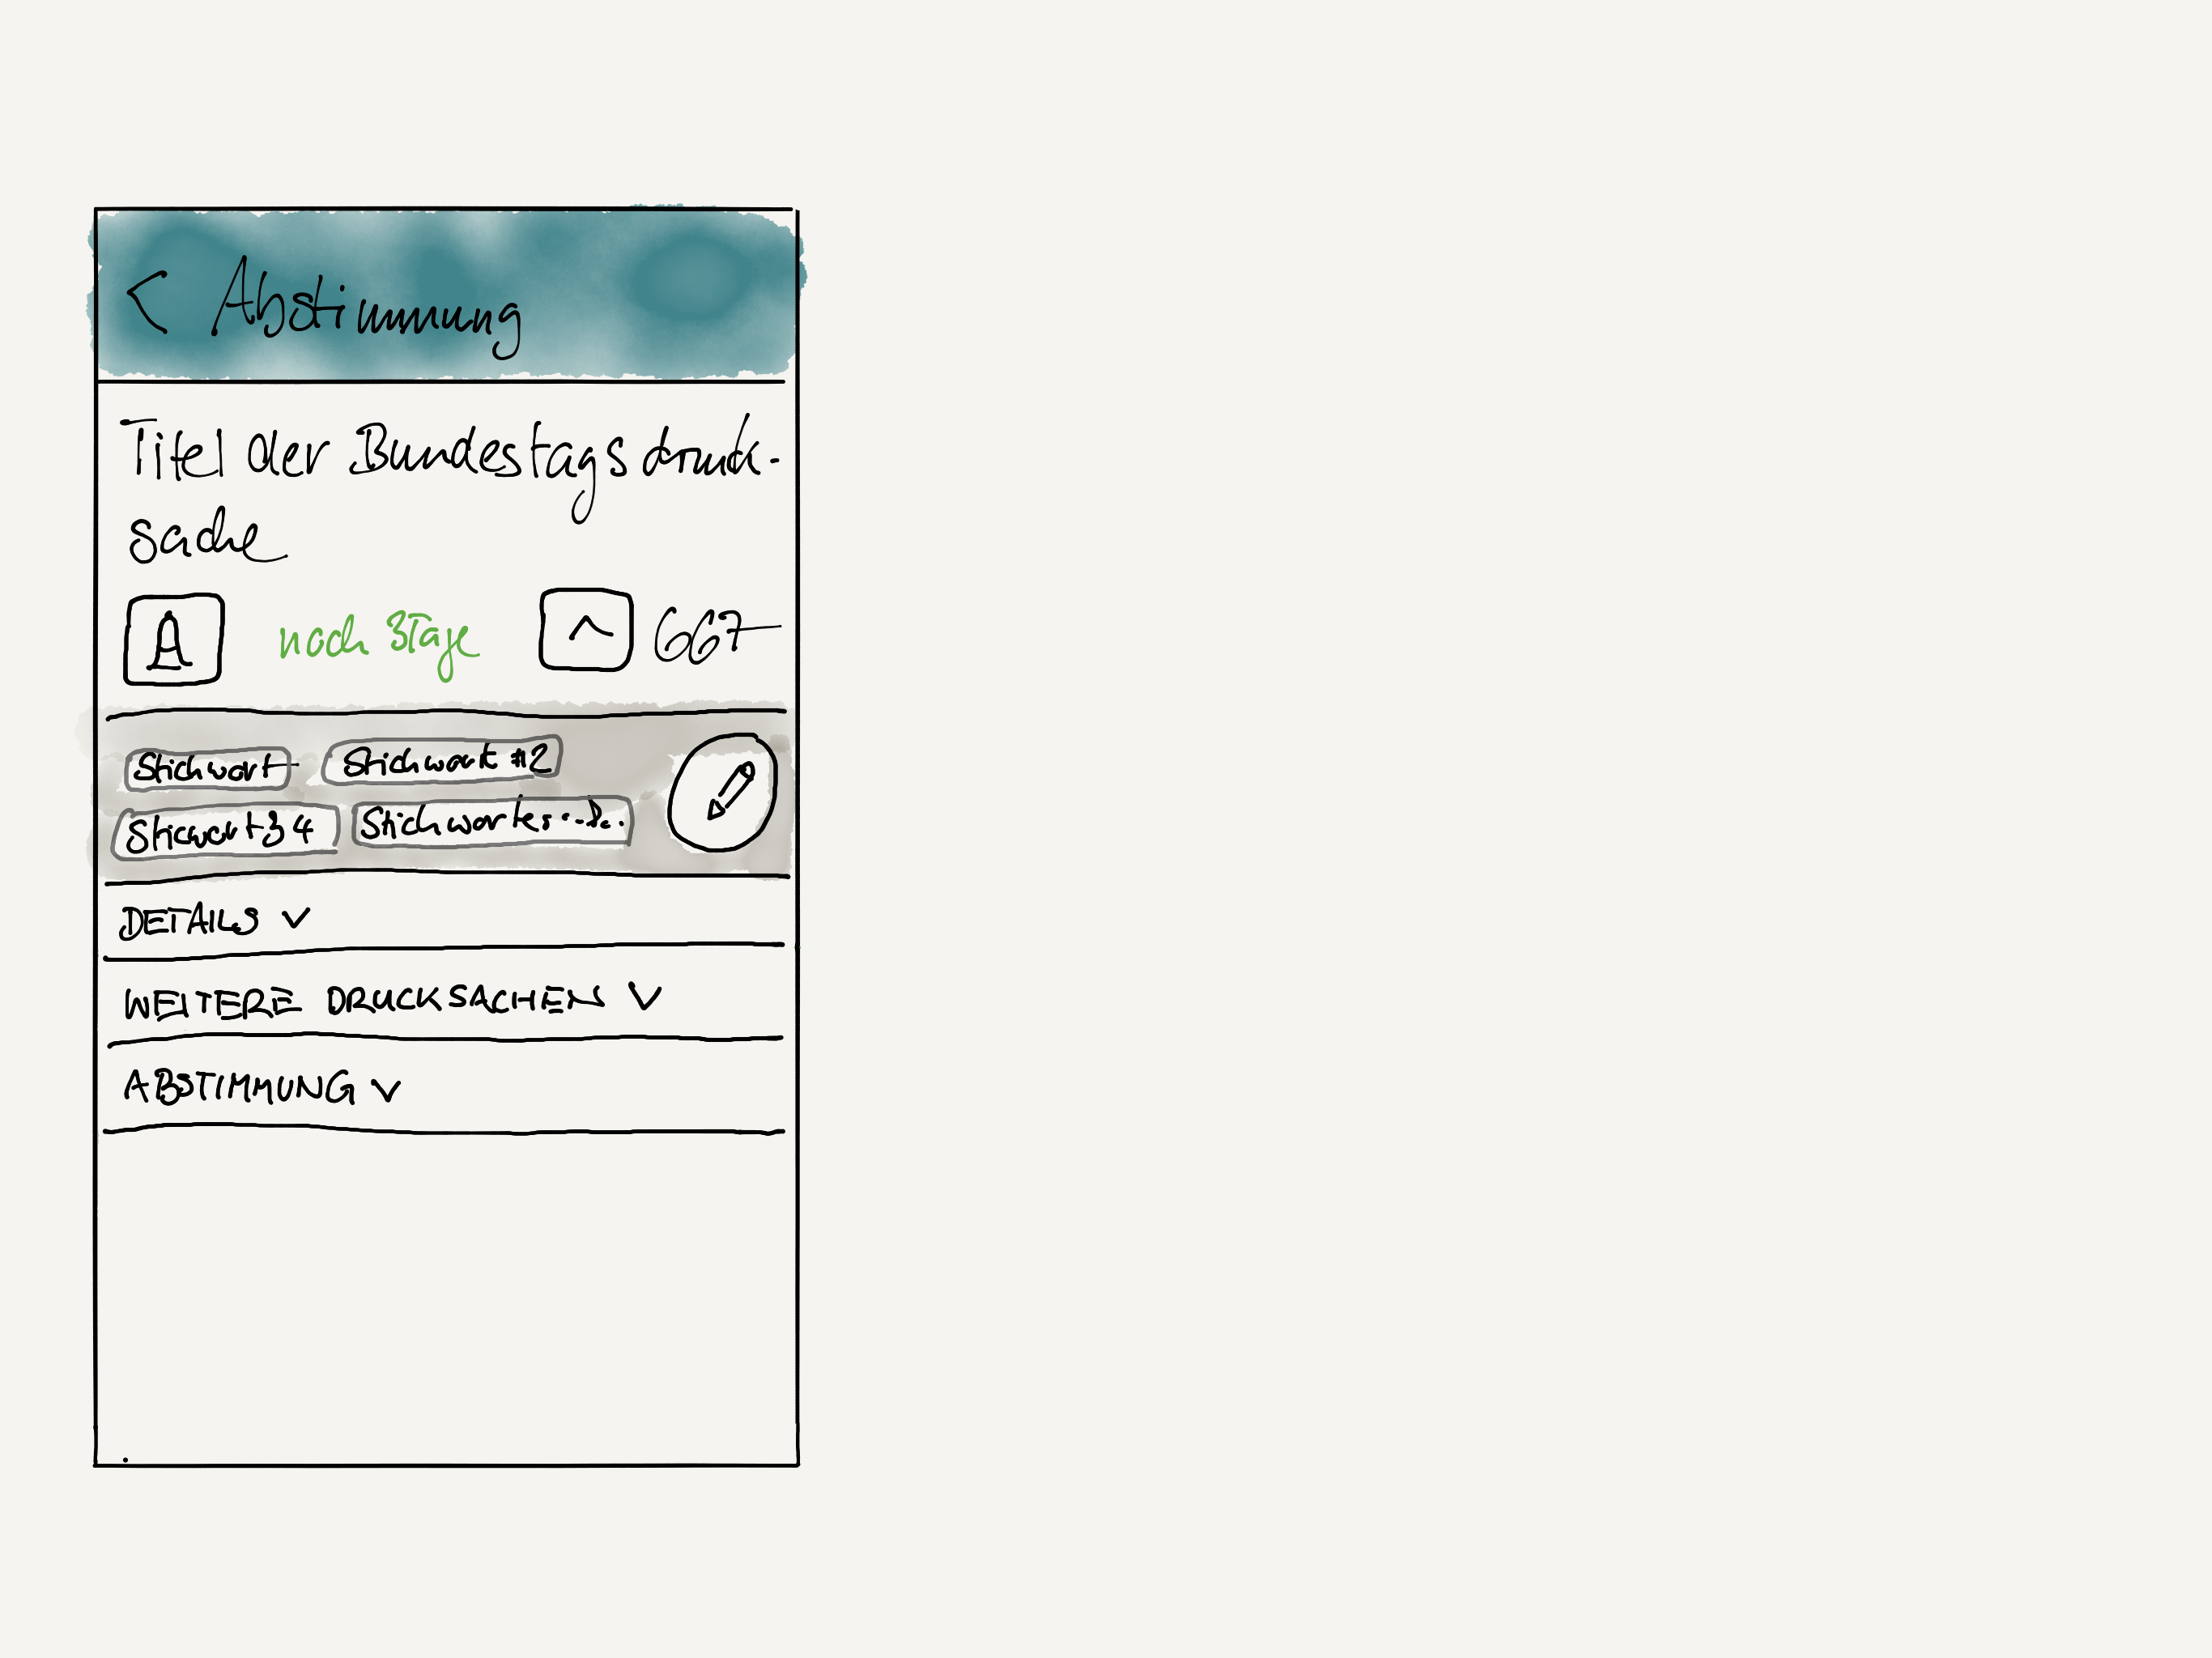 < Abstimmung
Titel der Bundestagsdruck-
sache
A noch 3Tage ^ 667
Stichwort Stichwort #2
Sticwort34
DETAILS v
WEITERE DRUCKSACHEN v
ABSTIMMUNG v